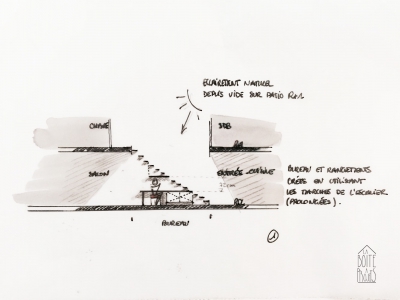 ECLAIREMENT NATUREL
DEPUIS VIDE SUR PATIO R+1
CHBRE
SDB
SALON
ENTRÉE - CUISINE
BUREAU ET RANGEMENTS
CRÉÉS EN UTILISANT
LES MARCHES DE L'ESCALIER
(PROLONGÉES).
BUREAU
1
LA
BOITE